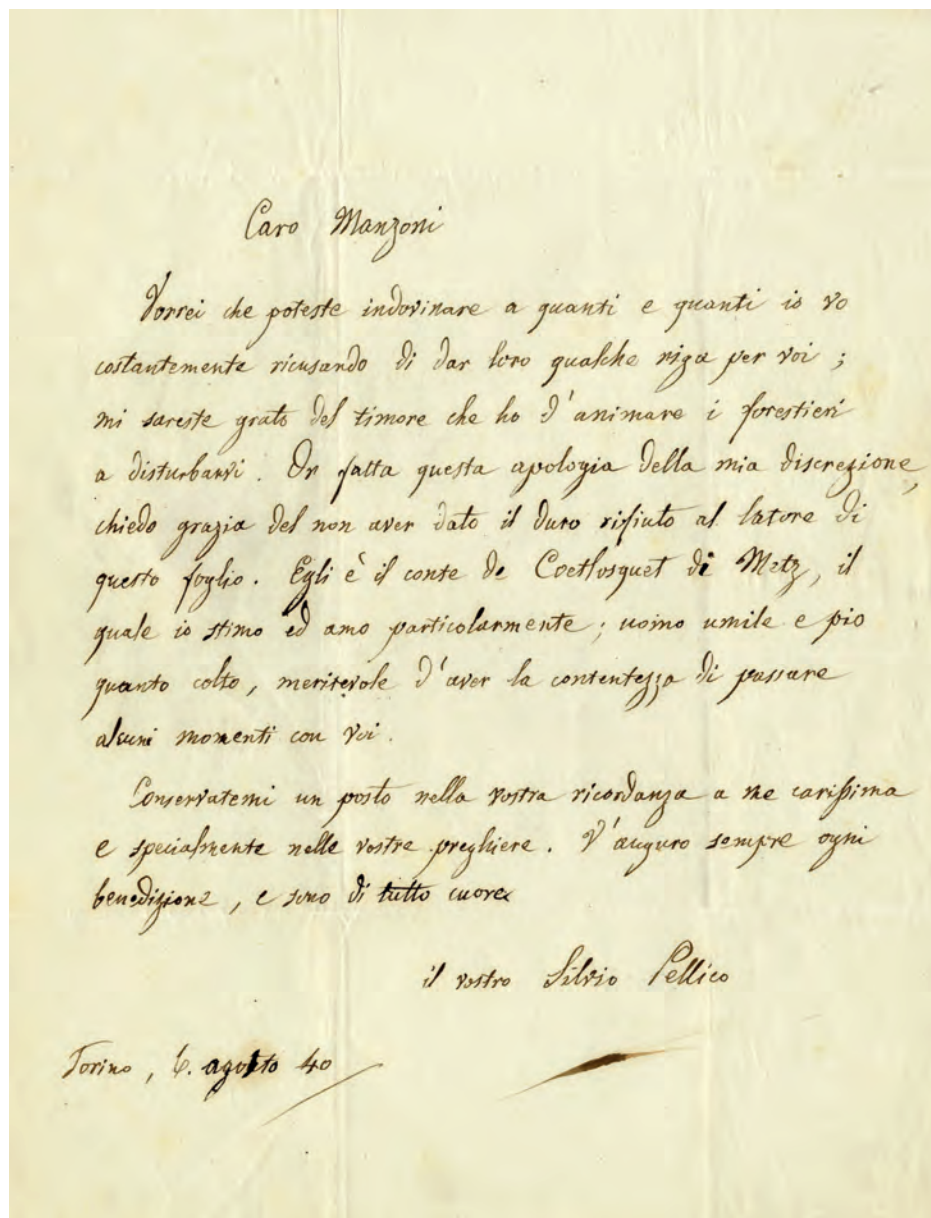 Caro Manzoni
Vorrei che poteste indovinare a quanti e quanti io vo
costantemente ricusando di dar loro qualche riga per voi ;
mi sareste grato del timore che ho d'animare i forestieri
a disturbarvi. Or fatta questa apologia della mia discrezione,
chiedo grazia del non aver dato il duro rifiuto al latore di
questo foglio. Egli è il conte de Coetlosquet di Metz, il
quale io stimo ed amo particolarmente ; uomo umile e pio
quanto colto, meritevole d'aver la contentezza di passare
alcuni momenti con voi.
Conservatemi un posto nella vostra ricordanza a me carissima
e specialmente nelle vostre preghiere. V'auguro sempre ogni
benedizione, e sono di tutto cuore
il vostro Silvio Pellico
Torino, 6. agosto 40